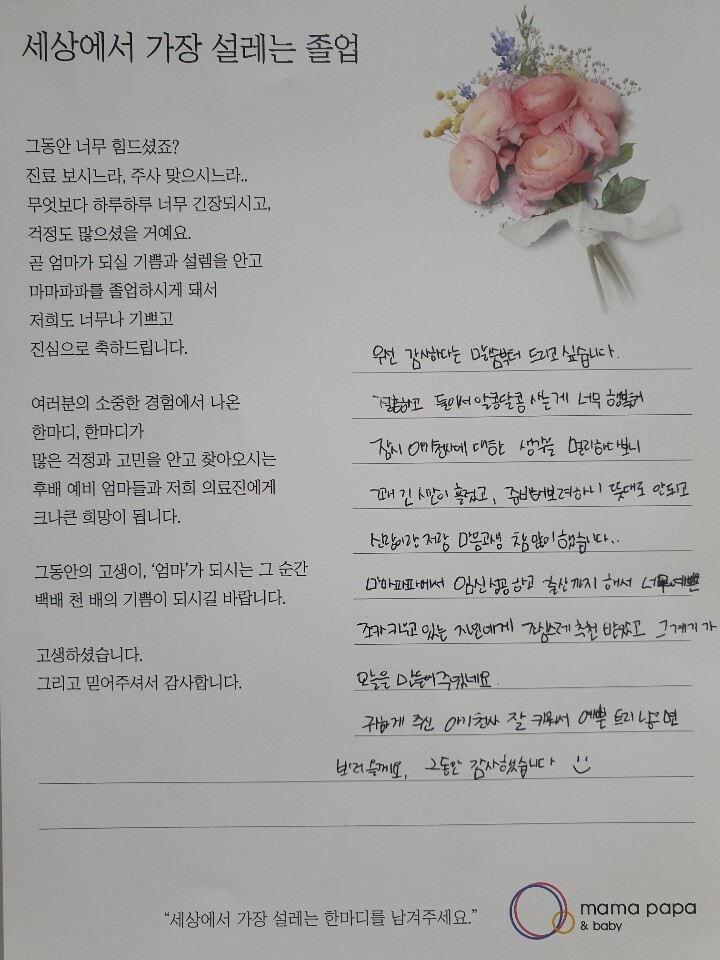 세상에서 가장 설레는 졸업
그동안 너무 힘드셨죠?
진료 보시느라, 주사 맞으시느라..
무엇보다 하루하루 너무 긴장되시고,
걱정도 많으셨을 거예요.
곧 엄마가 되실 기쁨과 설렘을 안고
마마파파를 졸업하시게 돼서
저희도 너무나 기쁘고
진심으로 축하드립니다.
여러분의 소중한 경험에서 나온
한마디, 한마디가
많은 걱정과 고민을 안고 찾아오시는
후배 예비 엄마들과 저희 의료진에게
크나큰 희망이 됩니다.
그동안의 고생이, ‘엄마’가 되시는 그 순간
백배 천 배의 기쁨이 되시길 바랍니다.
고생하셨습니다.
그리고 믿어주셔서 감사합니다.
우선 감사하다는 말씀부터 드리고 싶습니다.
결혼하고 둘이서 알콩달콩 사는게 너무 행복해
잠시 아기천사에 대한 생각을 멀리하다보니
꽤 긴 시간이 흘렀고, 준비해보려하니 뜻대로 안되고
신랑이랑 저랑 마음고생 참 많이 했습니다..
마마파파에서 임신 성공하고 출산까지 해서 너무 예쁜
조카 키우고 있는 지인에게 조심스레 추천 받았고 그 계기가
오늘을 만들어주셨네요.
귀하게 주신 아기천사 잘 키워서 예쁜 트리 낳으면
보러 올게요, 그동안 감사했습니다 :)
“세상에서 가장 설레는 한마디를 남겨주세요.”
mama papa
& baby